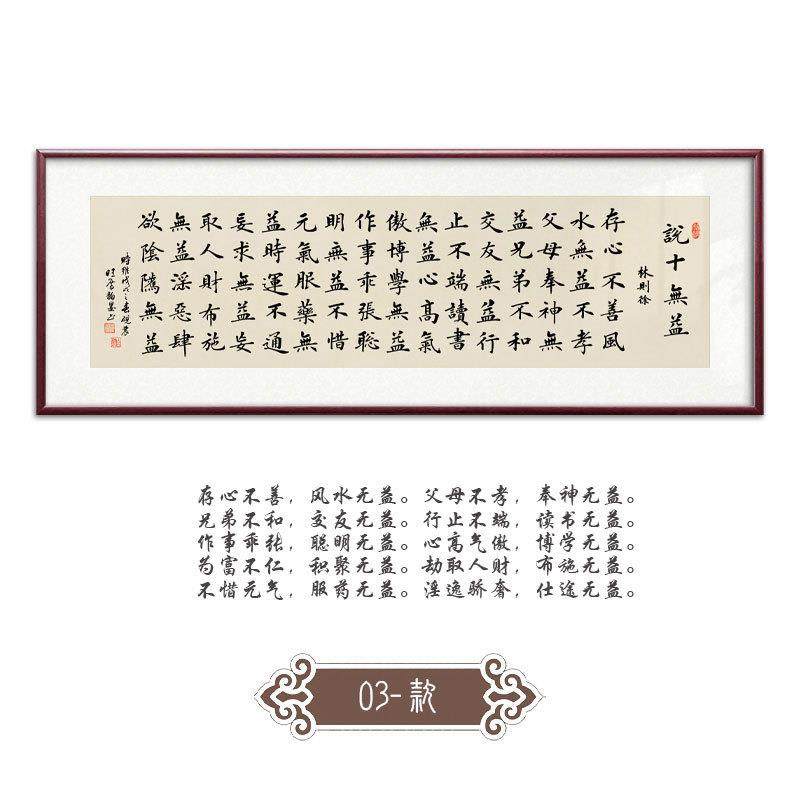 說十無益
林則徐
存心不善風
水無益不孝
父母奉神無
益兄弟不和
交友無益行
止不端讀書
無益心高氣
傲博學無益
作事乖張聰
明無益不惜
元氣服藥無
益時運不通
妄求無益妄
取人財布施
無益淫惡肆
欲陰隲無益
存心不善，风水无益。父母不孝，奉神无益。
兄弟不和，交友无益。行止不端，读书无益。
作事乖张，聪明无益。心高气傲，博学无益。
为富不仁，积聚无益。劫取人财，布施无益。
不惜元气，服药无益。淫逸骄奢，仕途无益。
03-款